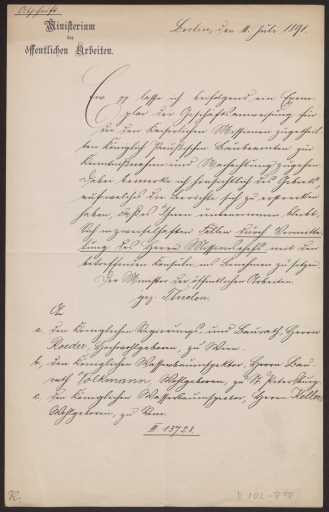 Abschrift.
Ministerium
der
öffentlichen Arbeiten.
Berlin, den 11. Juli 1891.
Ew pp lasse ich beifolgend ein Exem-
plar der Geschäftsanweisung für
die den Kaiserlichen Missionen zugetheil-
ten Königlich Preußischen Baubeamten zur
Kenntnißnahme und Beachtung zugehen.
Dabei bemerke ich hinsichtlich des Gebiets,
auf welches die Berichte sich zu erstrecken
haben, daß es Ihnen unbenommen bleibt,
sich in zweifelhaften Fällen durch Vermitte-
lung des Herrn Missionschefs mit den
betreffenden Konsuln ins Benehmen zu setzen.
Der Minister der öffentlichen Arbeiten
gez. Thielen.
An
a. den Königlichen Regierungs- und Baurath, Herrn
Roeder, Hochwohlgeboren, zu Wien.
b, den Königlichen Wasserbauinspektor, Herrn Bau-
rath Volkmann, Wohlgeboren, zu St. Petersburg.
c. den Königlichen Wasserbauinspector, Herrn Keller,
Wohlgeboren, zu Rom.
III 13728.